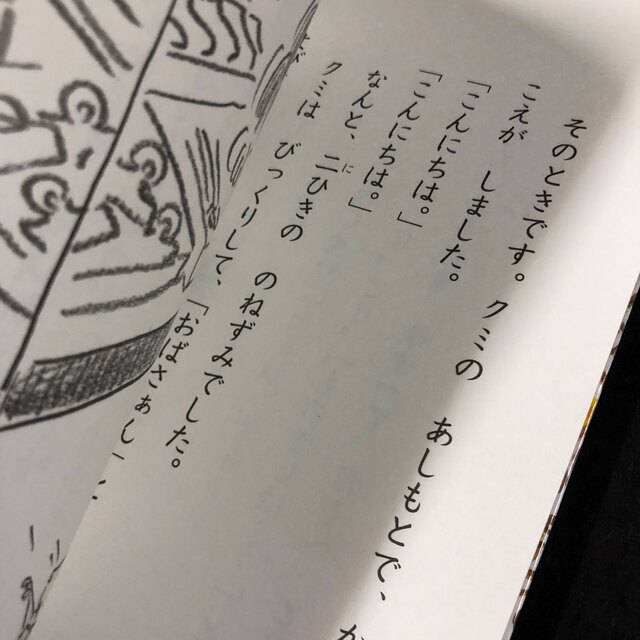 そのときです。 クミの あしもとで、
こえが しました。
「こんにちは。」
「こんにちは。」
なんと、二ひきの のねずみでした。
に
クミは びっくりして、「おばさぁし